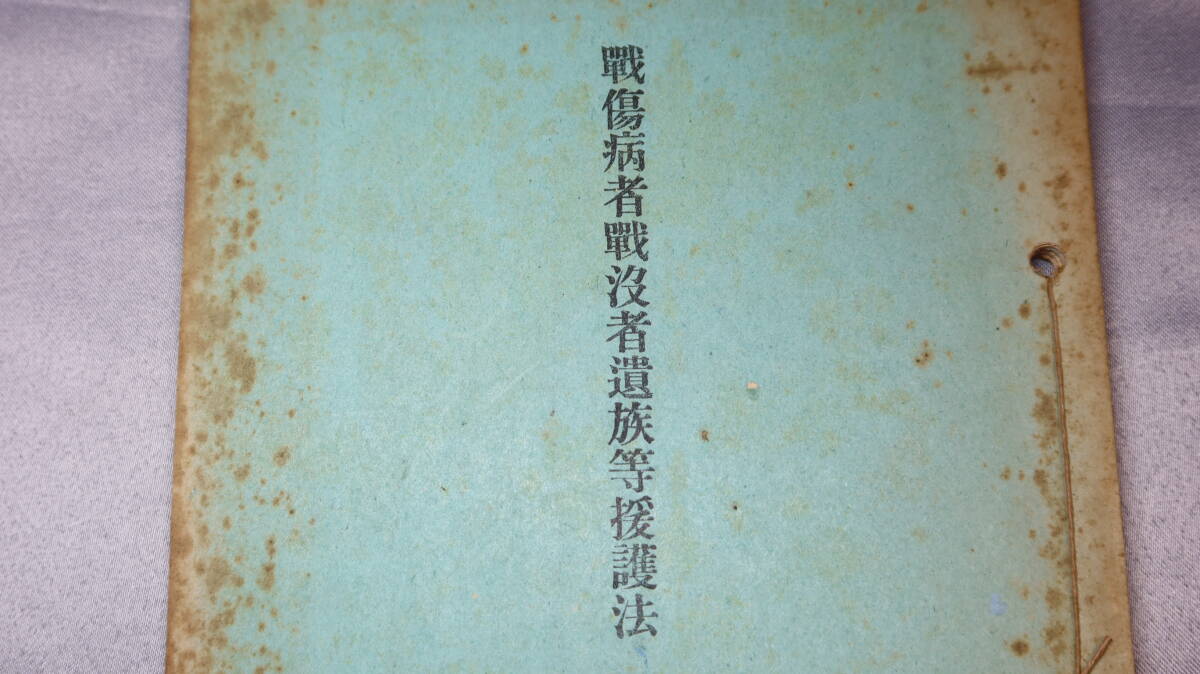 戰傷病者戰沒者遺族等援護法